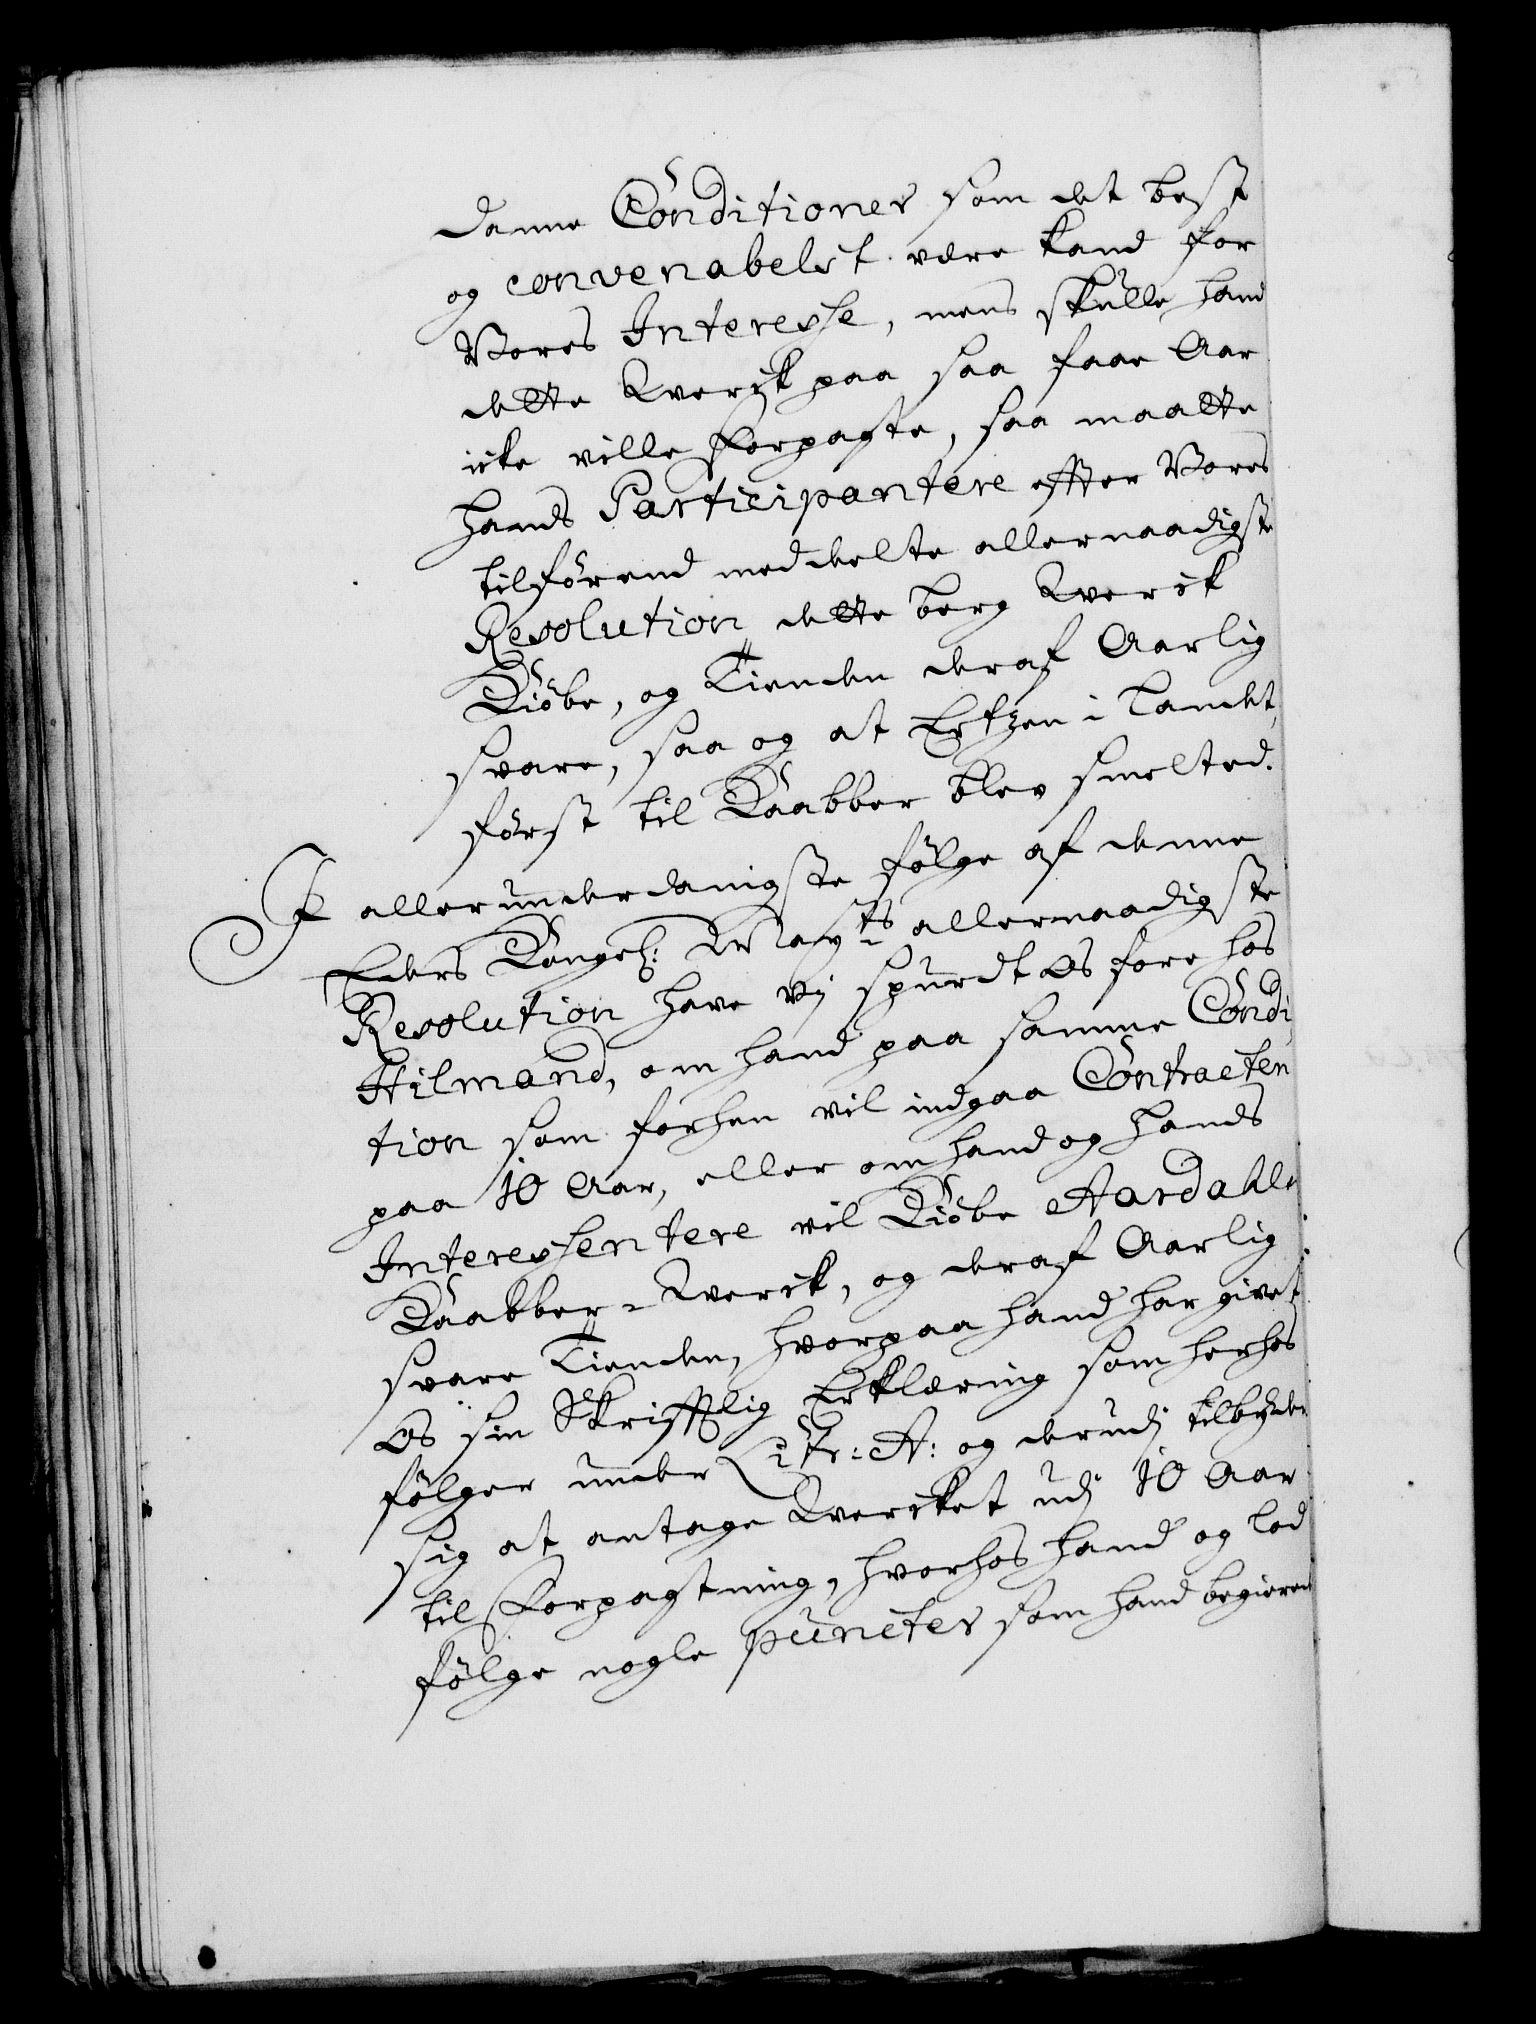 danne Conditioner som det best
og convenabelst være kand for
Vores Interesse, mens skulle hand
dette Werck paa saa faae Aar
icke ville Forpagte, saa maatte
hands Participantere effter Vores
tilförend meddelte allernaadigste
Resolution dette berg Werck
Kiöbe, og Tienden deraf Aarlig
svare, saa og at Ertzen i Landet,
först til Kaabber blev smelted.
I allerunderdanigste fölge af denne
Eders Kongel: Mayts allernaadigste
Resolution have vj spurdt os fore hos
Hilmand, om hand paa samme Condi
tion som forhen vil indgaa Contracten
paa 10 Aar, eller om hand og hands
Interessentere vil Kiöbe Aardahls
Kaabber-Werck, og deraf Aarlig
svare Tienden, hvorpaa hand har givet
os sin Skrifftlig Erklæring som herhos
fölger under Litr: A: og derudj tilbyder
sig at antage Wercket udj 10 Aar
til Forpagtning, hvorhos hand og lod
fölge nogle puncter som hand begierend